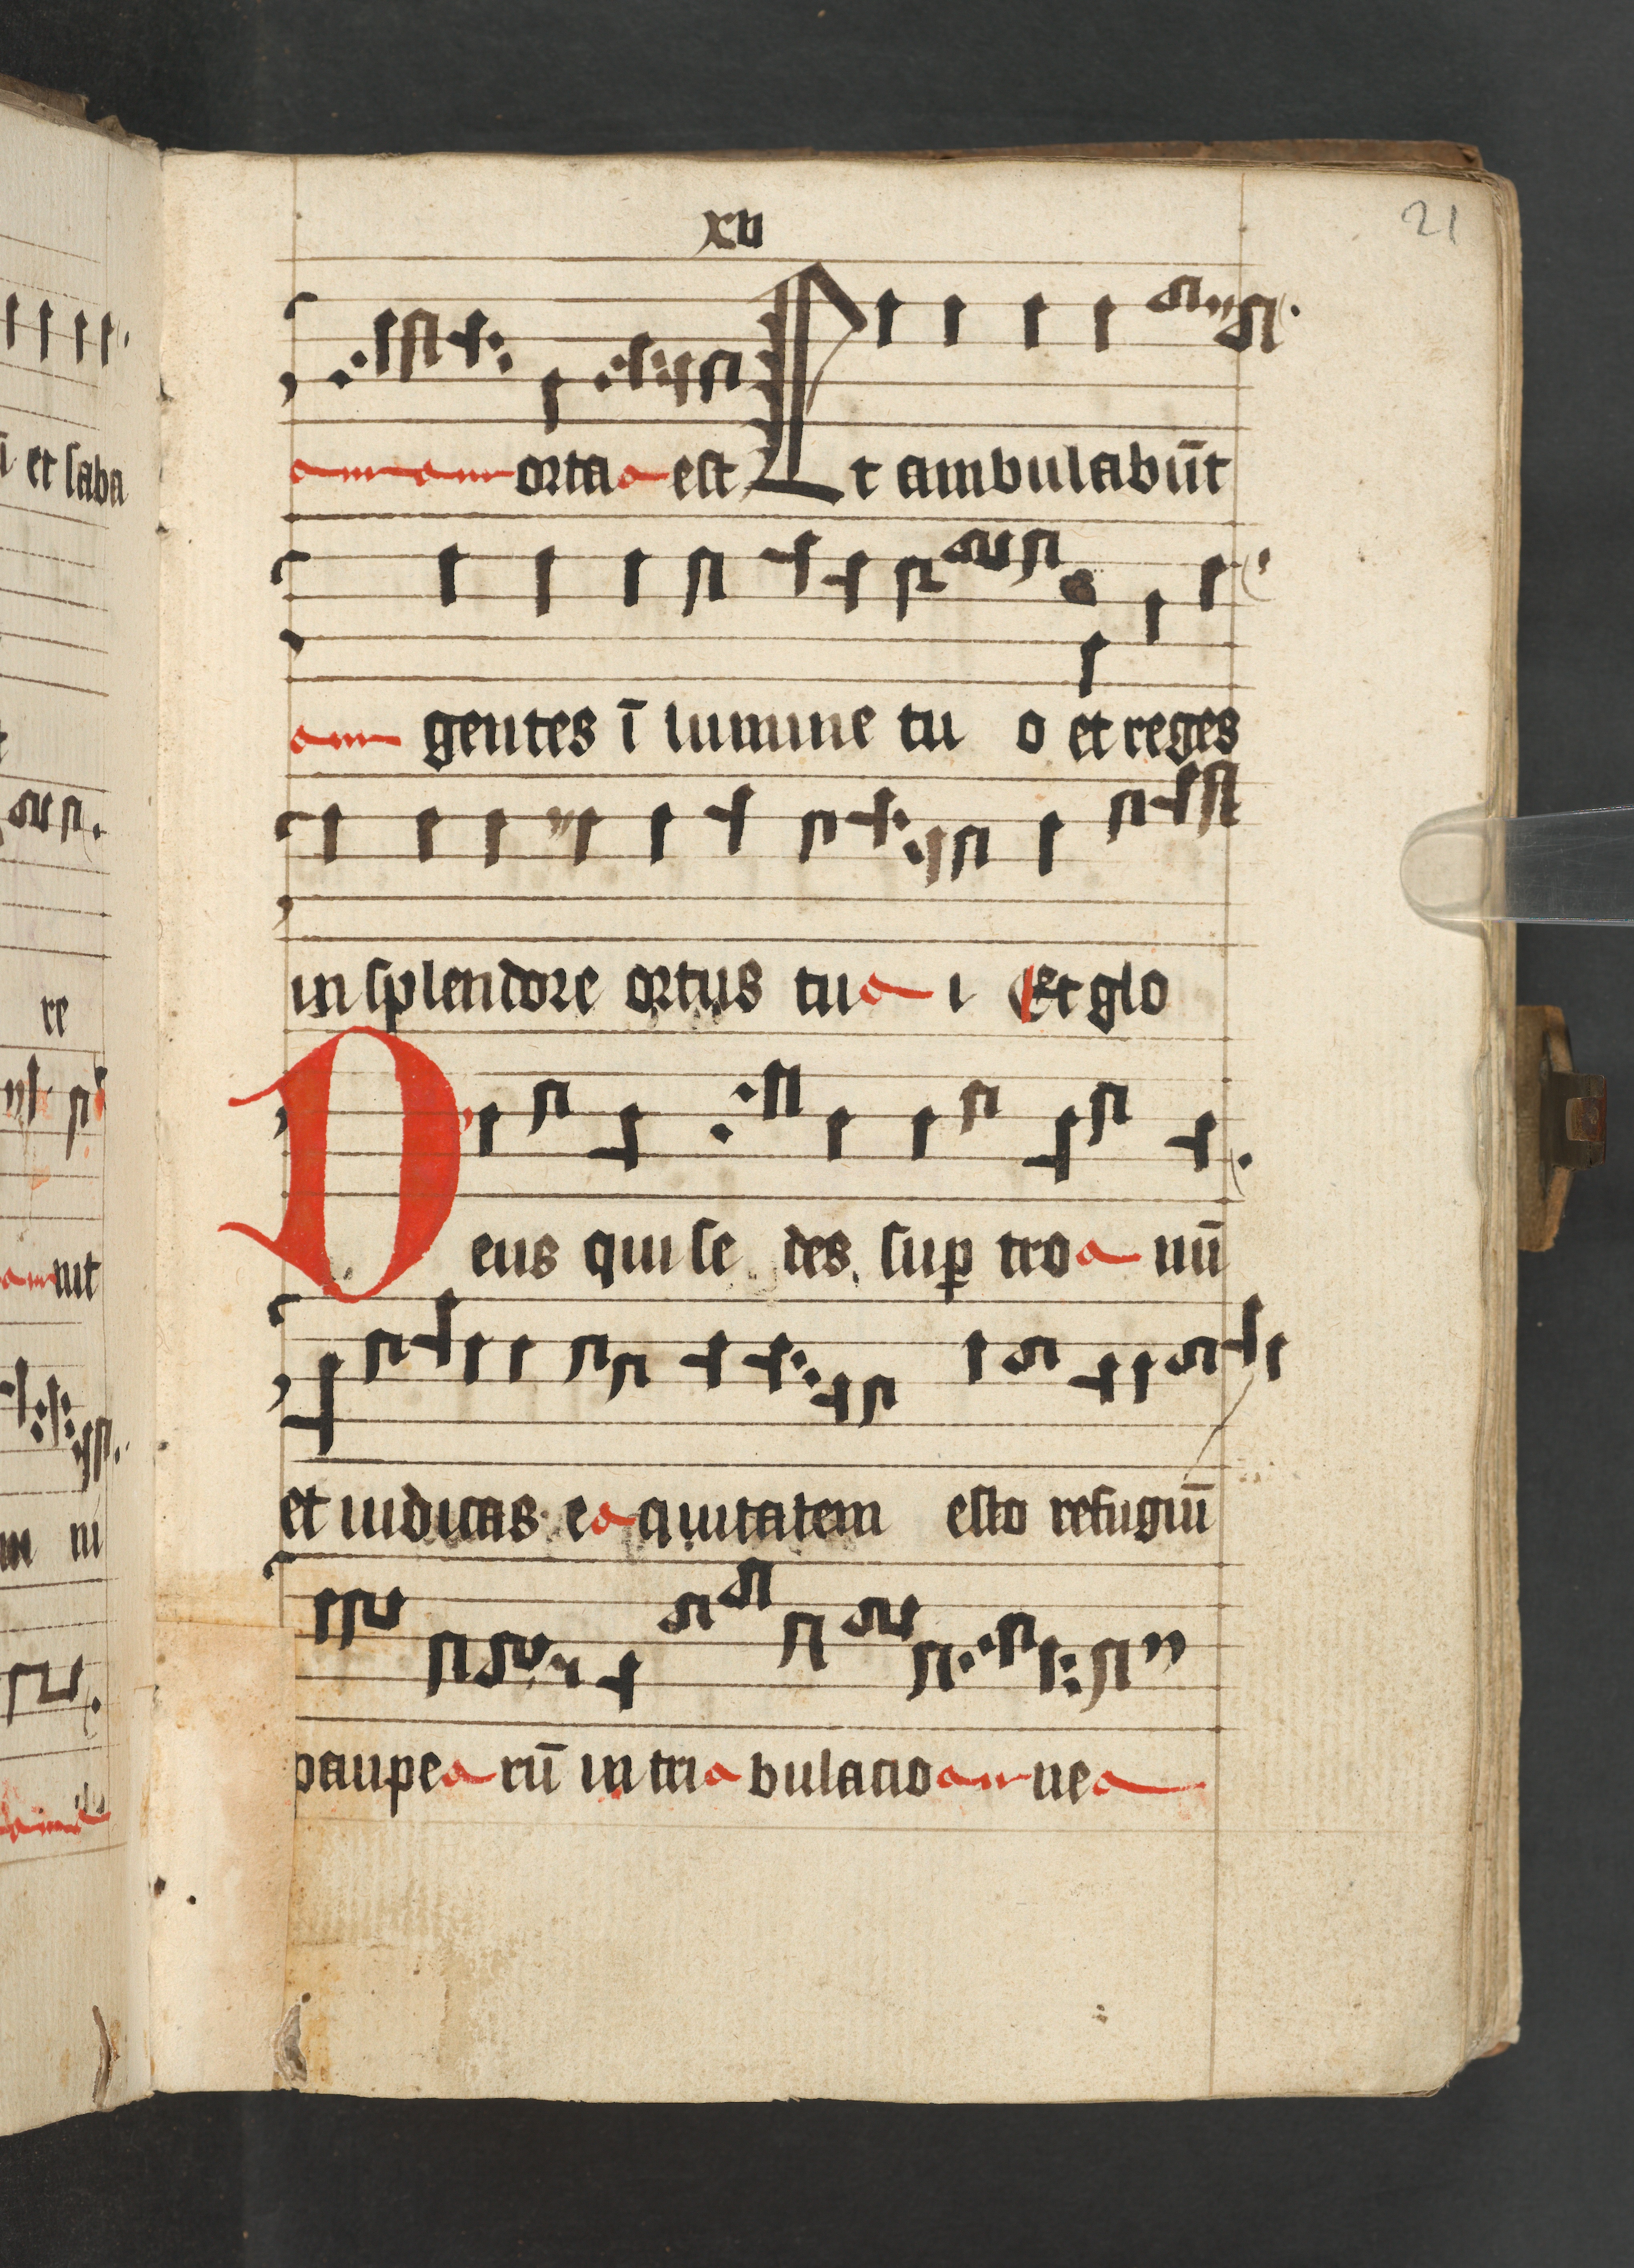 xvi
21
orta est Et ambulabūt
gentes ī lumine tu o et reges
in splendore ortus tu i Et glo
Deus qui se des sup tro nū
et iudicas e quitatem esto refugiū
paupe rū in tri bulacio ne
ī et saba
re
nit